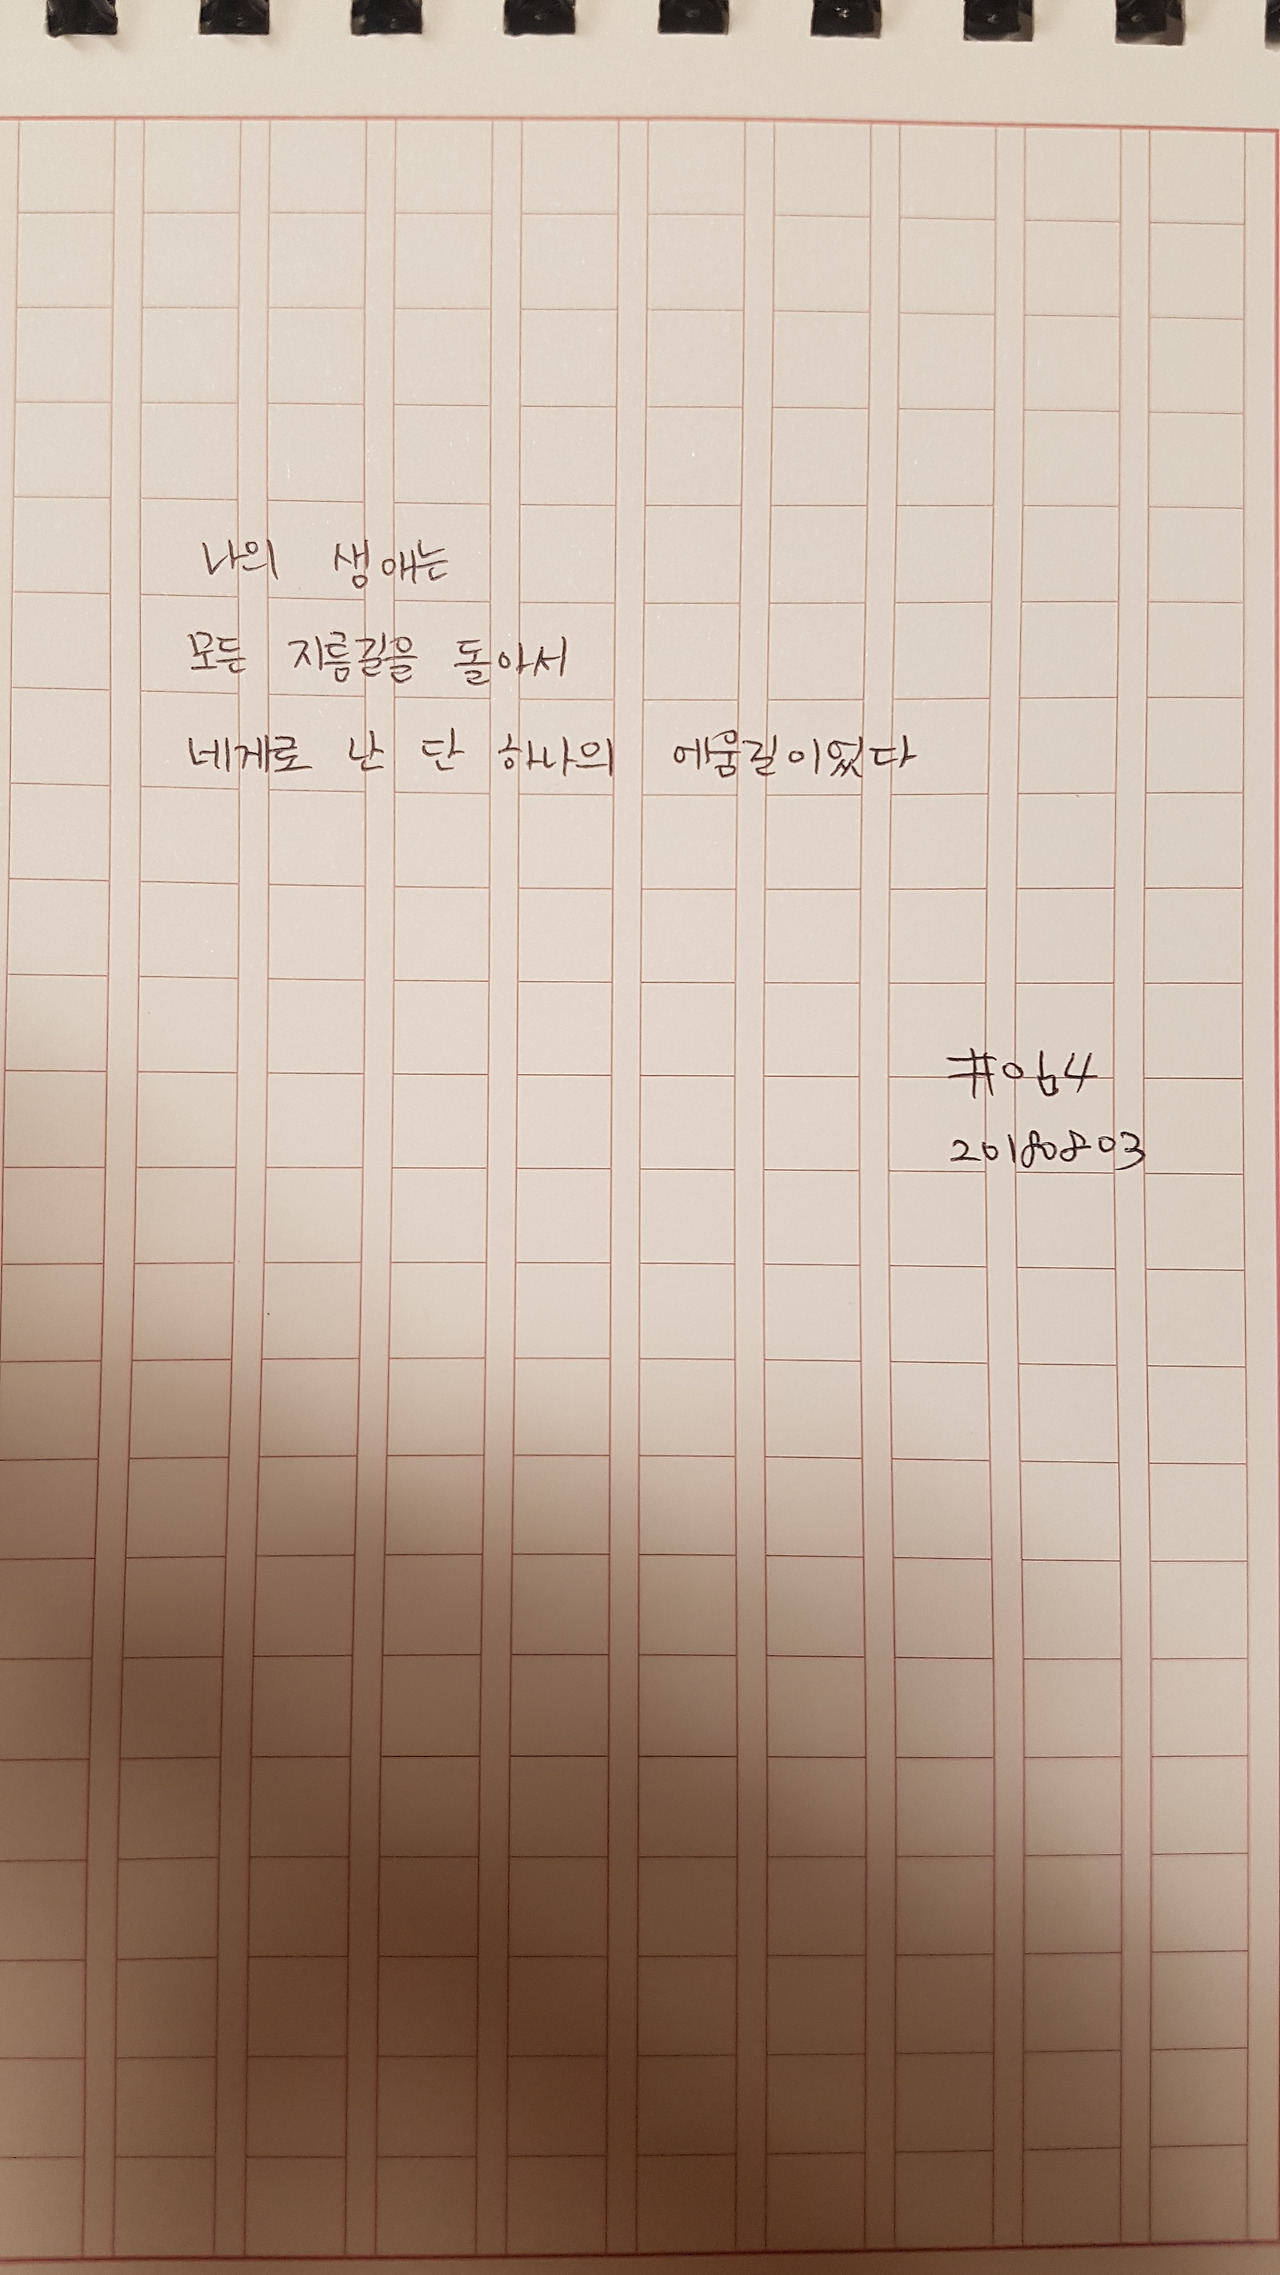 나의 생애는
모든 지름길을 돌아서
네게로 난 단 하나의 에움길이었다
#064
20180803